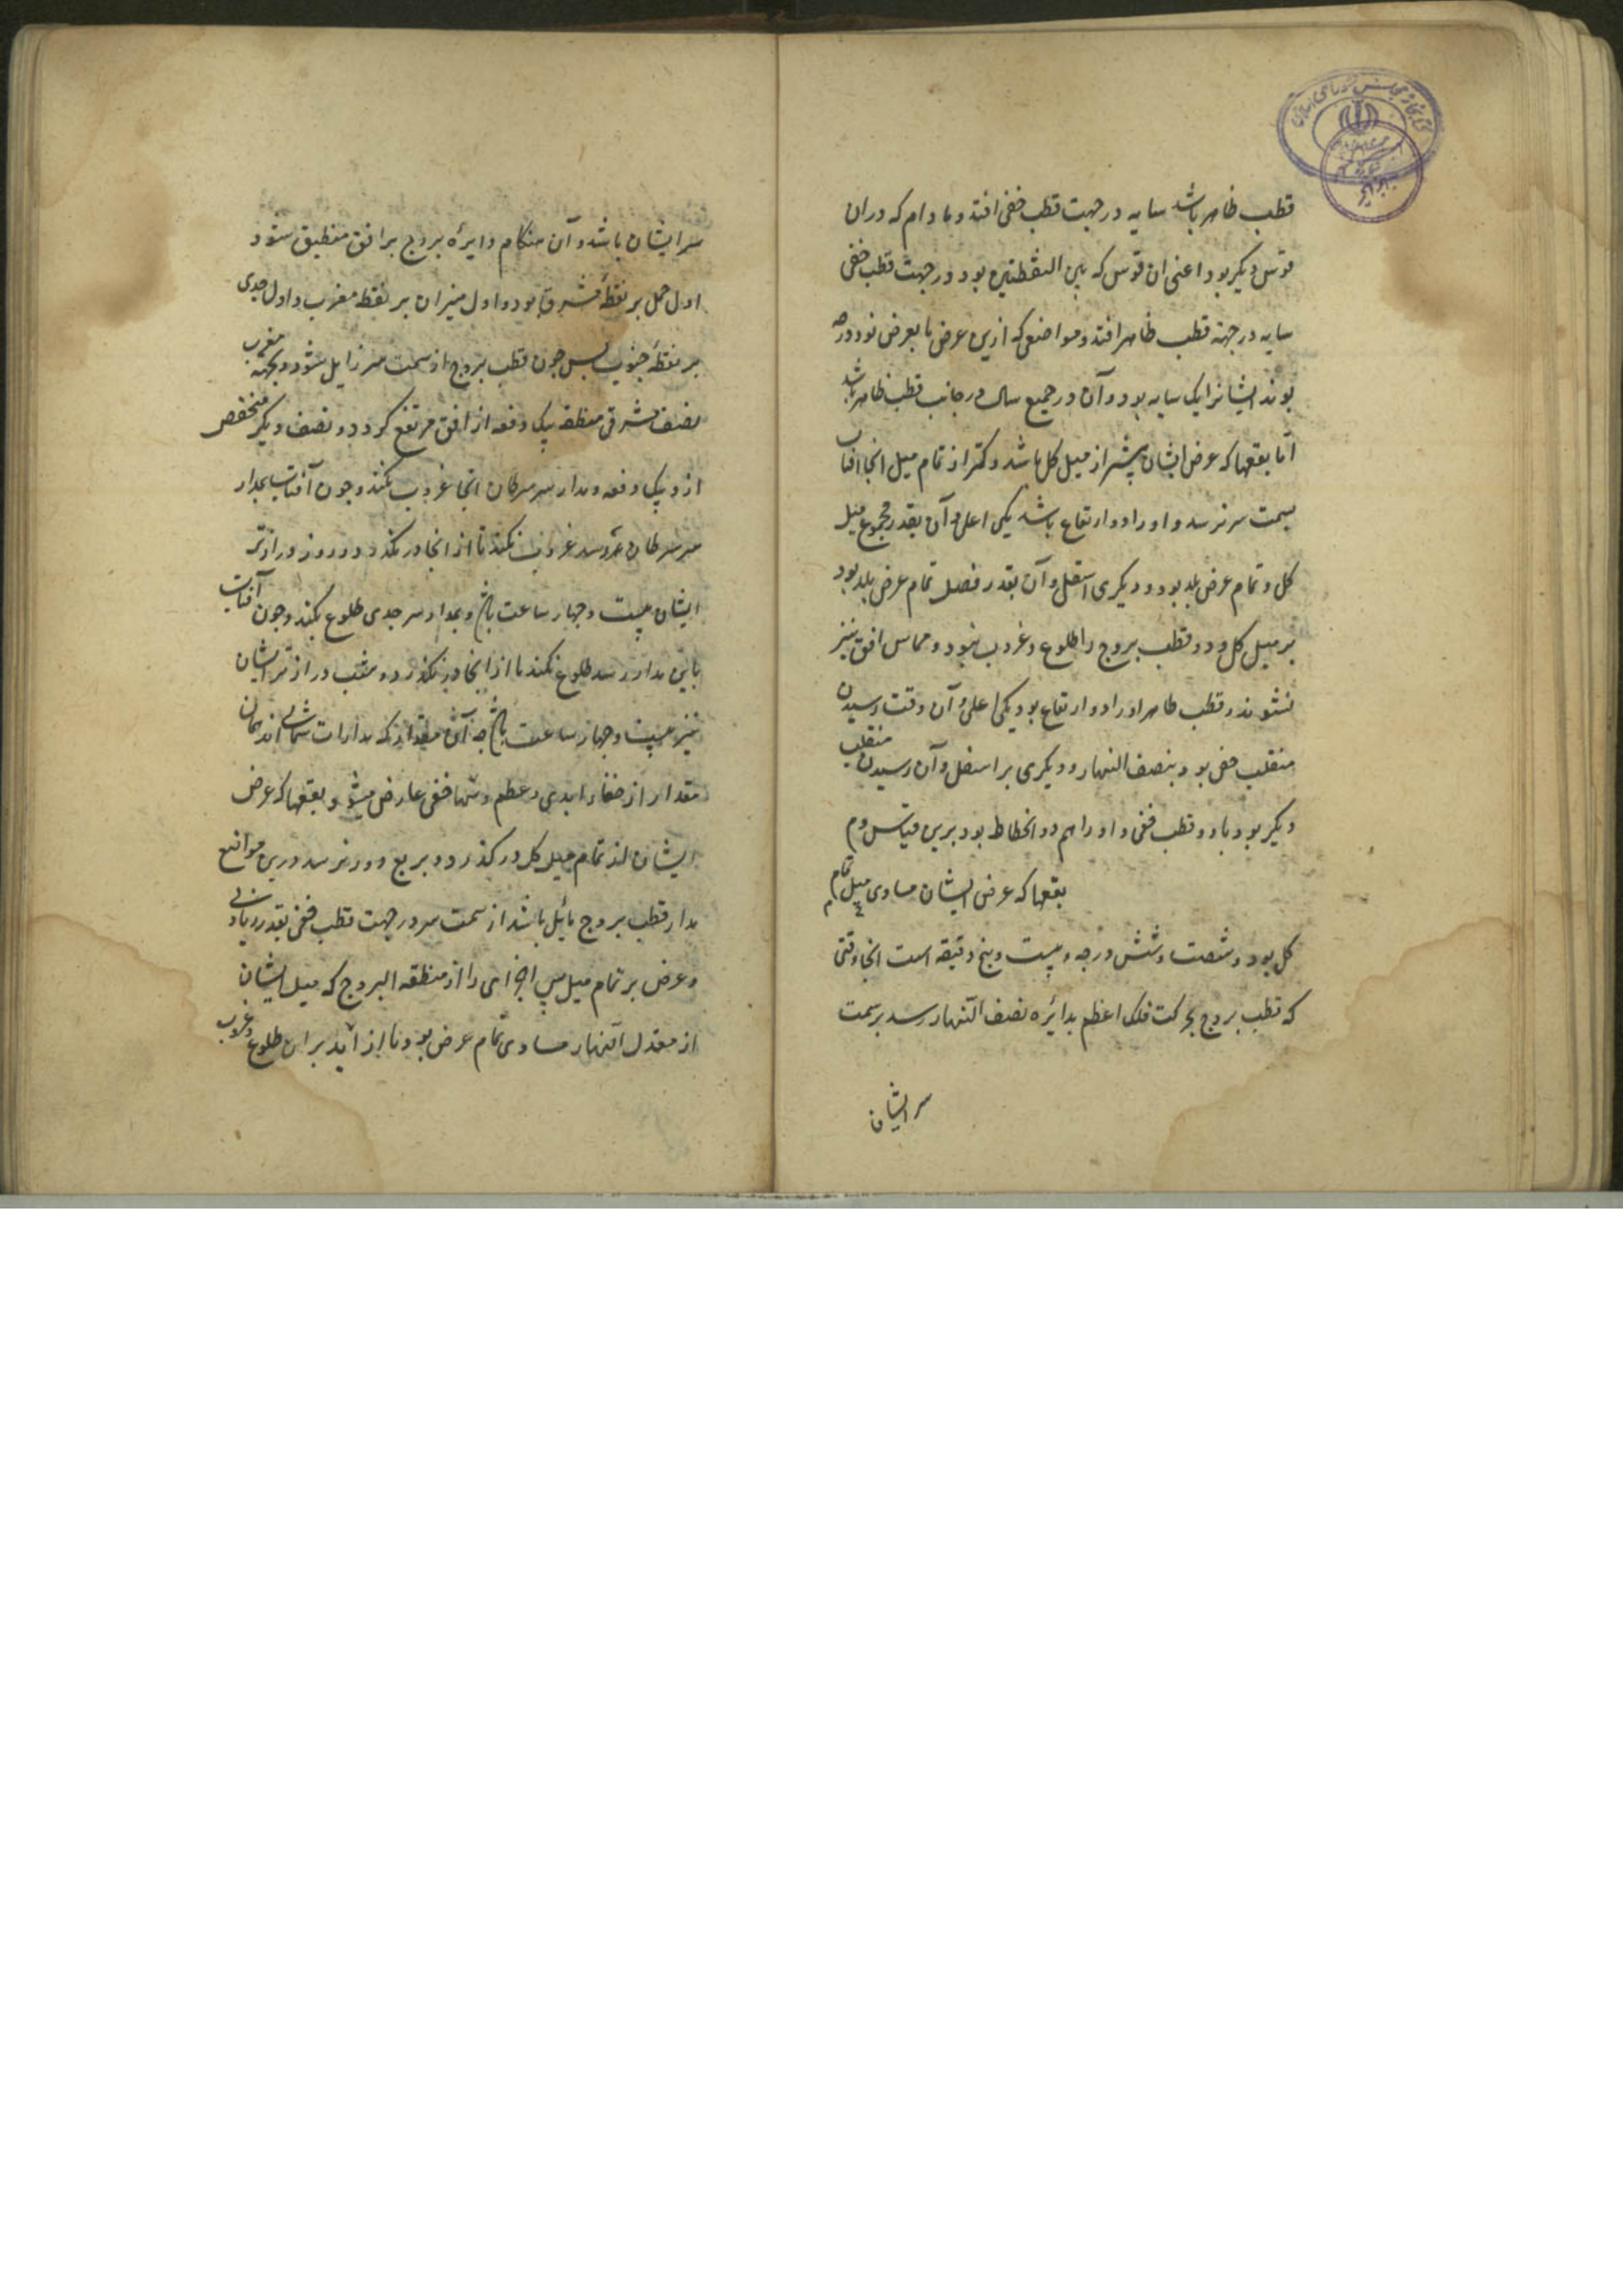 قطب ظاهر باشد سایه در جهت قطب خفی افتد و مادام که دران
قوس دیکر بود اعنی ان قوس که بین النقطتین بود در جهت قطب خفی
سایه در جهة قطب ظاهر افتد و مواضعی که ازین عرض تا بعرض نود درجه
بوند ایشانرا یک سایه بود و آن در جمیع سال در جانب قطب ظاهر باشد
اما بقعها که عرض ایشان بیشتر از میل کل باشد و کمتر از تمام میل انجا افتاب
بسمت سر نرسد و او را دو ارتفاع باشد یکی اعلی و آن بقدر مجموع میل
کل و تمام عرض بلد بود و دیکری اسفل و آن بقدر فصل تمام عرض بلد بود
بر میل کل و دو قطب بروج را طلوع و غروب نبود و مماس افق نیز
نشوند و قطب ظاهر او را دو ارتفاع بود یکی اعلی و آن وقت رسیدن
منقلب خفی بود بنصف النهار و دیکری بر اسفل و آن رسیدن منقلب
دیکر بود بدو و قطب خفی و او را هم دو انحطاط بود برین قیاس
بقعها که عرض ایشان مساوی تمام میل
کل بود و شصت و شش درجه و بیست و پنج دقیقه است انجا وقتی
که قطب بروج بحرکت فلک اعظم بدایٔره نصف النهار رسد برسمت
سر ایشان
سر ایشان باشد و آن هنکام دایرهٔ بروج بر افق منطبق شود
اول حمل بر نقطهٔ مشرق بود و اول میزان بر نقطه مغرب و اول جدی
بر نقطهٔ جنوب پس جون قطب بروج از سمت سر زایل شود و بجهة مغرب
نصف شرقی منطقه بیک دفعه از افق مرتفع کردد و نصف دیکر منخفض
ازو بیک دفعه و مدار سر سرطان انجا غروب نکند و جون آفتاب بمدار
سر سرطان رسد غروب نکند تا از انجا در نکذرد و روز درازتر
ایشان بیست و چهار ساعت باشد و مدار سر جدی طلوع نکند و جون آفتاب
باین مدار رسد طلوع نکند تا از انجا در نکذرد و شب درازتر ایشان
نیز بیست و جهار ساعت باشد چه آن مقدار که مدارات شمالی اند همان
مقدار از خفاء ابدی و عظم و تنها خفی عارض میشود و بقعها که عرض
ایشان از تمام میل کل در کذرد و بربع دور نرسد درین مواضع
مدار قطب بروج مایٔل باشد از سمت سر در جهت قطب خفی بقدر زیادتی
عرض بر تمام میل پس اجزایی را از منطقه البروج که میل ایشان
از معدل النهار مساوی تمام عرض بود و یا از آید بران طلوع و غروب